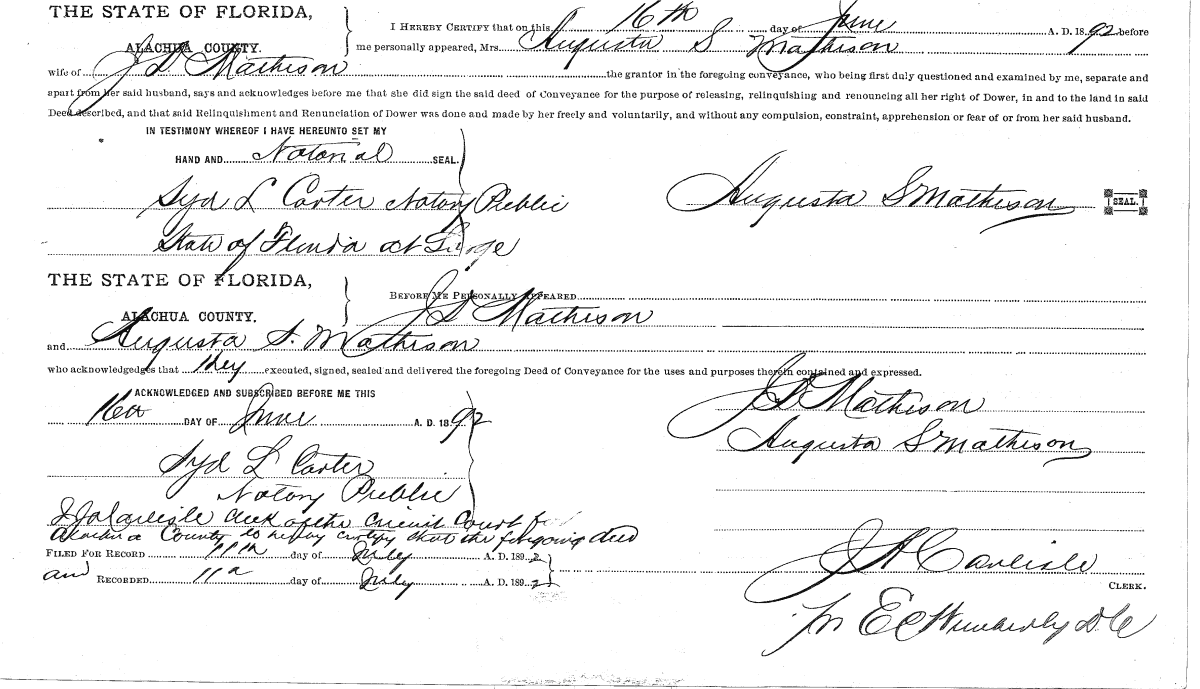 THE STATE OF FLORIDA,
I HEREBY CERTIFY that on this 16th day of June A. D. 1892 before
ALACHUA COUNTY.
me personally appeared, Mrs. Augusta S Mathison
wife of J D Mathison the grantor in the foregoing conveyance, who being first duly questioned and examined by me, separate and
apart from her said husband, says and acknowledges before me that she did sign the said deed of Conveyance for the purpose of releasing, relinquishing and renouncing all her right of Dower, in and to the land in said
Deed described, and that said Relinquishment and Renunciation of Dower was done and made by her freely and voluntarily, and without any compulsion, constraint, apprehension or fear of or from her said husband.
IN TESTIMONY WHEREOF I HAVE HEREUNTO SET MY
HAND AND Notorial SEAL.
Syd L Carter Notary Public
Augusta S Mathison SEAL.
State of Florida at Large
THE STATE OF FLORIDA,
BEFORE ME PERSONALLY APPEARED
ALACHUA COUNTY.
J D Mathison
and Augusta S. Mathison
who acknowledges that they executed, signed, sealed and delivered the foregoing Deed of Conveyance for the uses and purposes therein contained and expressed.
ACKNOWLEDGED AND SUBSCRIBED BEFORE ME THIS
J D Mathison
16th DAY OF June A. D. 1892
Augusta S Mathison
Syd L Carter
Notary Public
I J A Carlisle Clerk of the Circuit Court for
Alachua County do hereby certify that the foregoing deed
FILED FOR RECORD 11th day of July A. D. 1892
J A Carlisle
and RECORDED 11th day of July A. D. 1892
CLERK.
E C Wimberly D. C